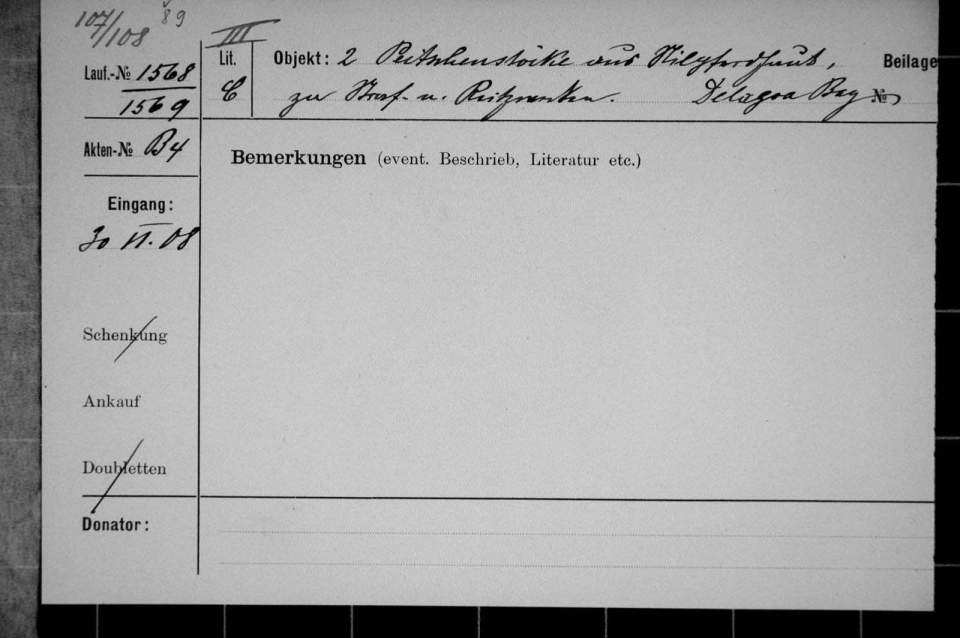 107/108 89
III
Lauf.-No 1568
1569
Lit. C
Objekt: 2 Peitschenstöcke aus Nilpferdhaut,
zu Straf- u. Reitzwecken. Delagoa Bay
Beilage
No
Akten-No B4
Bemerkungen (event. Beschrieb, Literatur etc.)
Eingang:
30 VI. 08
Schenkung
Ankauf
Doubletten
Donator: